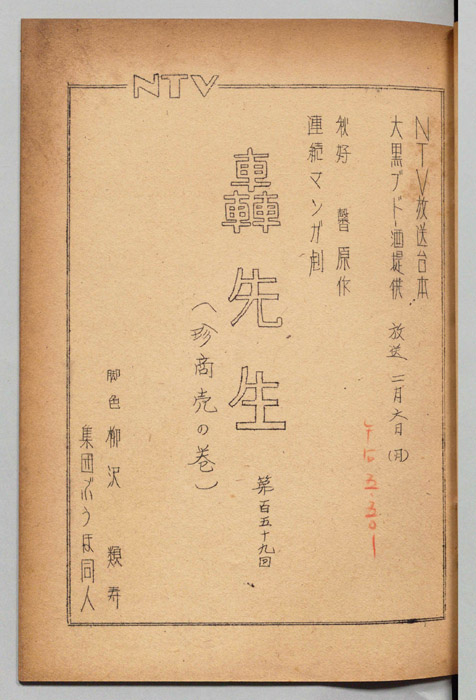 NTV
NTV放送台本
大黒ブドー酒提供 放送 二月六日(月)
秋好 馨 原作
連続マンガ劇
轟先生
(珍商売の巻)
第百五十九回
脚色 柳沢 類寿
集団ぶうほ同人